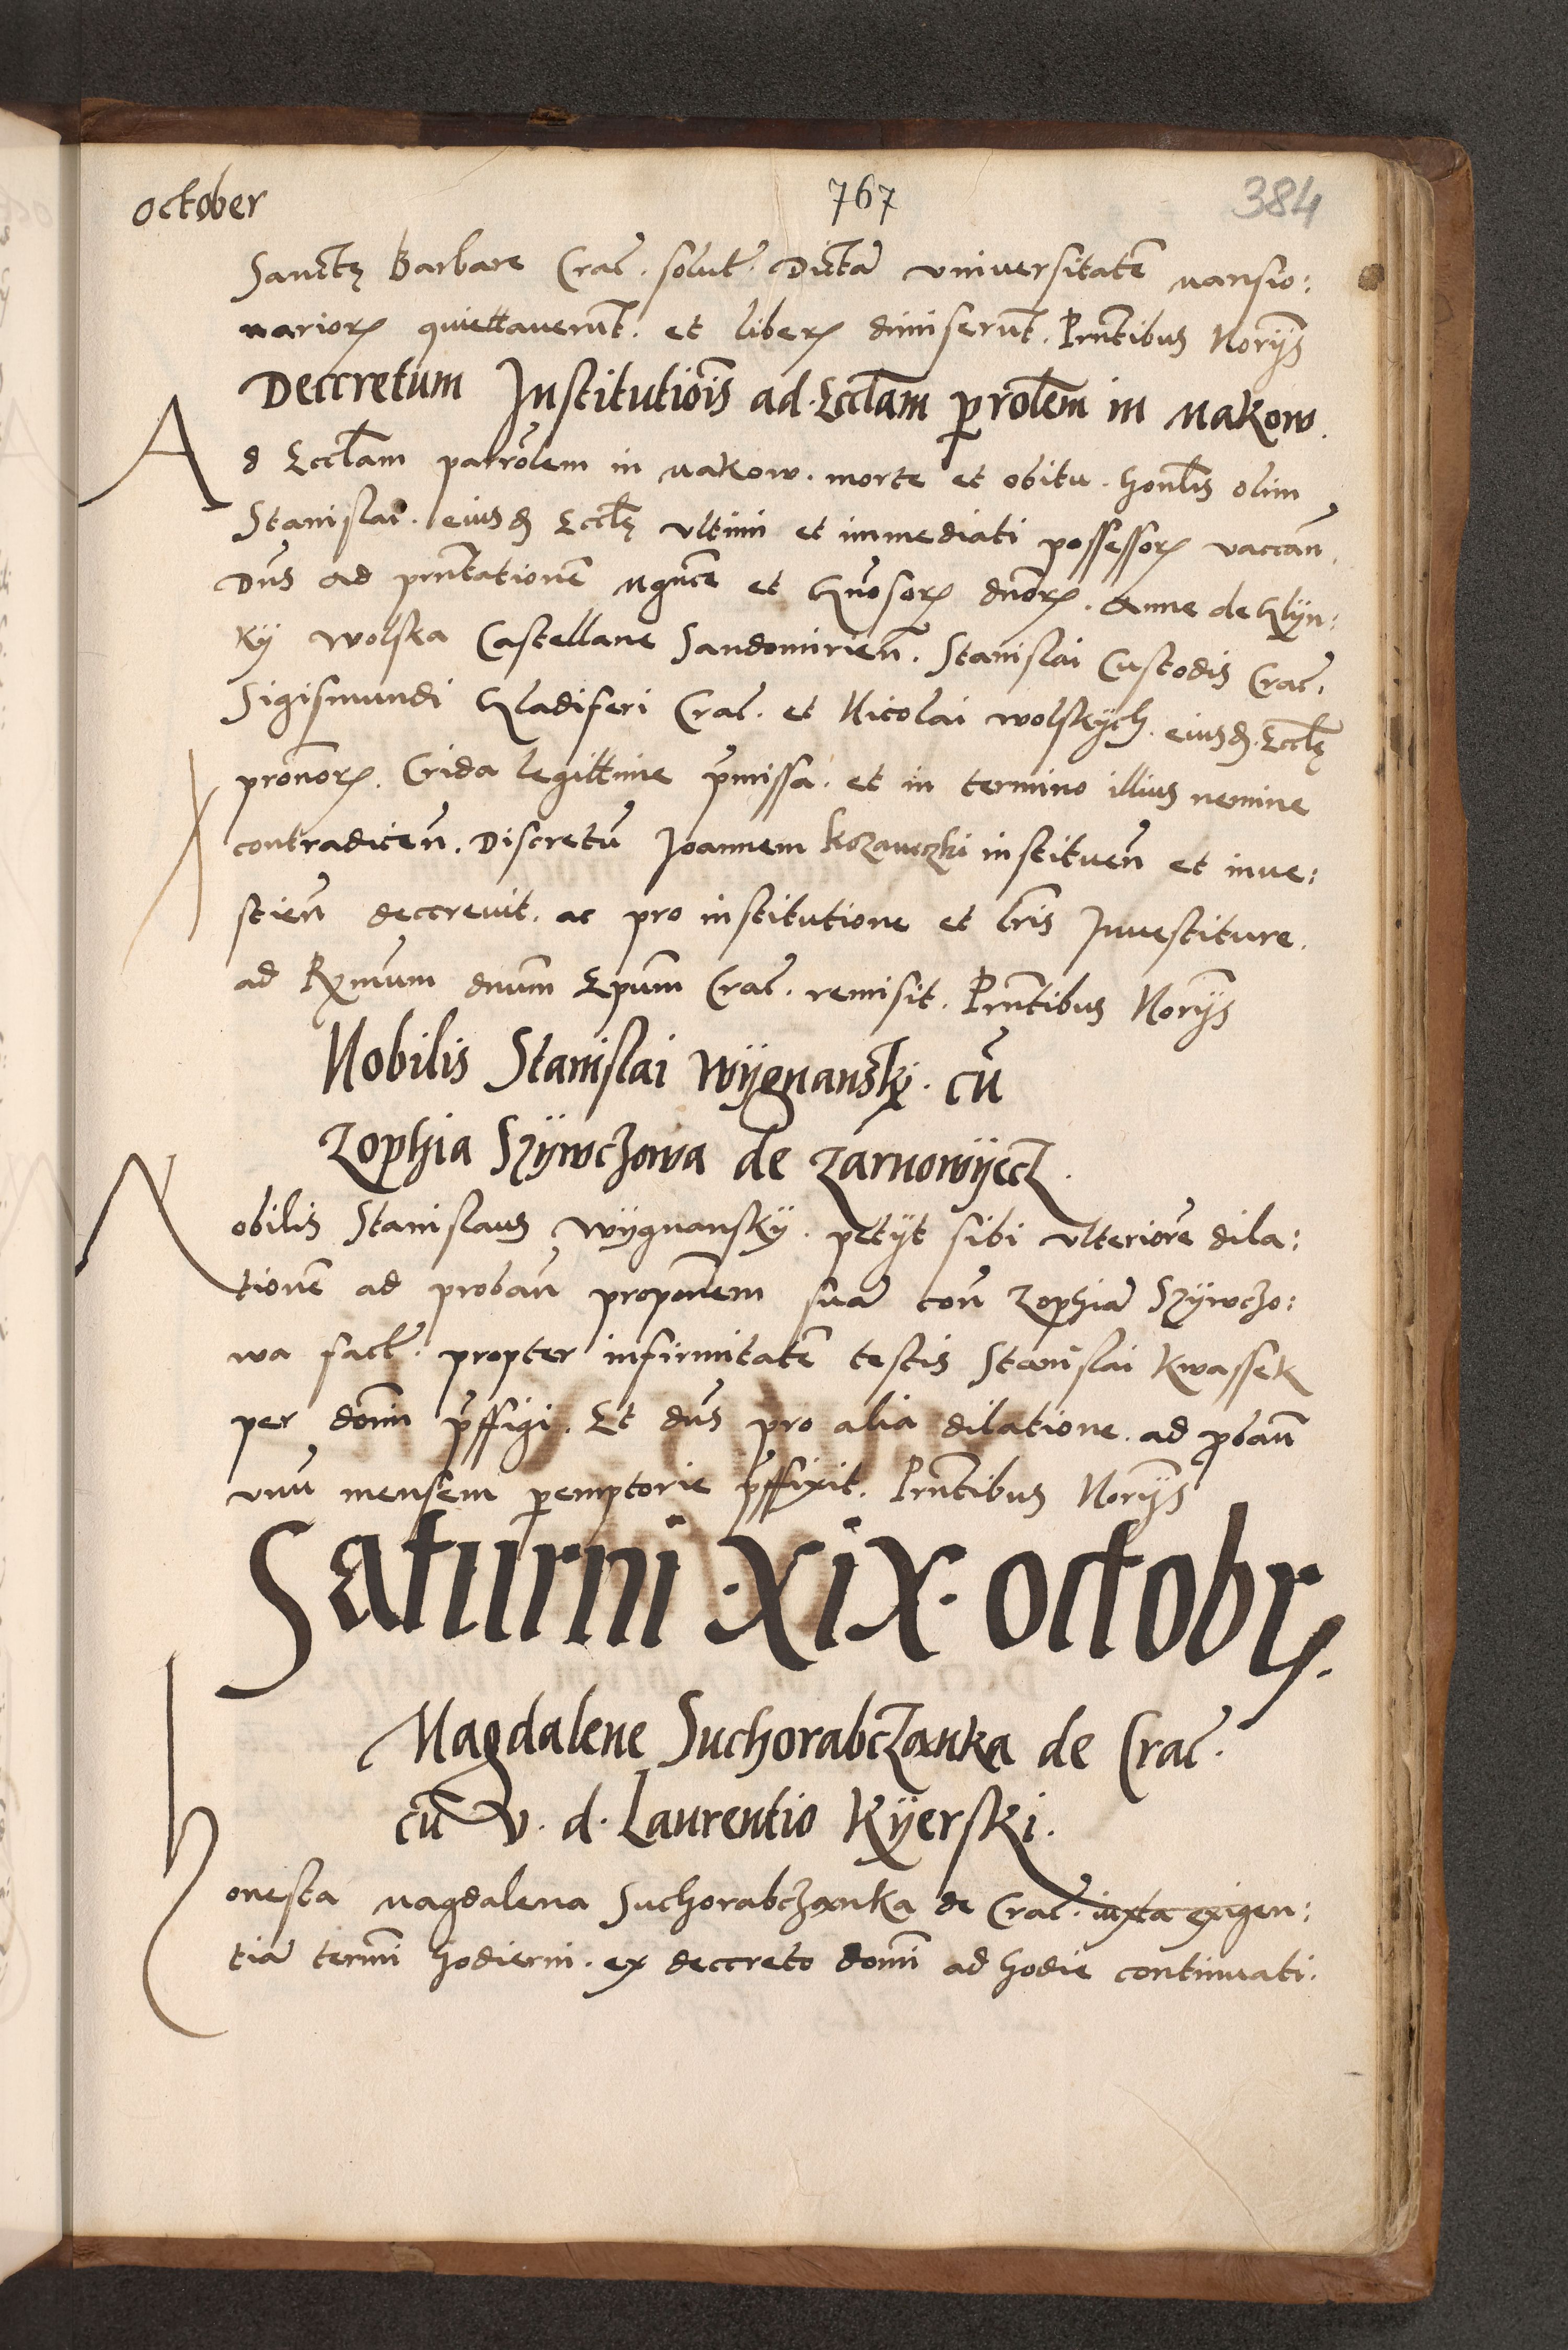 october 767 384
Sanctę Barbare Crac. solut. Dictā vniversitatē mansio:
narioꝝ quiettaverūt. et liberꝝ dimiserūt. Prn̄tibus Norijs
Deccretum Institutiōis ad Eccl̄am ꝑrol̄em in Makow.
Ad Eccl̄am parrōlem in makow. morte et obitu. hon̄lis olim
Stanislai. eiusd̄ Eccl̄ę vltimi et immediati possessorꝝ vaccan̄.
Dn̄s ad prn̄tationē mgn̄ce et Gn̄osorꝝ dn̄orꝝ. Anne de Glÿn:
kÿ wolska Castellane Sandomirien̄. Stanislai Custodis Crac.
Sigismundi Gladiferi Crac. et Nicolai wolskÿch. eiusd̄. Eccl̄ę
pron̄orꝝ. Crida legittime p̄missa. et in termino illius nemine
contradicen̄. Discretū Joannem Kozaneczki instituen̄ et inue:
stien̄ deccrevit. ac pro institutione et lr̄is Jnvestiture.
ad Rx̄mum dnū̄m Ep̄um Crac. remisit. Prn̄tibus Norijs
Nobilis Stanislai Wÿgnanskÿ. cū
Zophia Szÿwczowa de zarnowÿecz.
Nobilis Stanislaus Wÿgnanskÿ. petÿt sibi vlteriorē dila:
tionē ad proban̄ propon̄em suā con̄ Zophiā Szÿwczo:
wa fact. propter infirmitatē testis Stanislai Kwassek
per dom̄ p̄ffigi. Et dn̄s pro alia dilatione. ad ꝓban̄
vnū mensem ꝑemptorie p̄ffixit. Prn̄tibus Norijs
Saturni .xix. octobrꝭ.
Magdalene Suchorabczanka de Crac.
cū v. d. Laurentio Kÿerski.
Honesta magdalena Suchorabczanka de Crac. iuxta exigen:
tiā termī hodierni. ex deccreto domī ad hodie continuati.